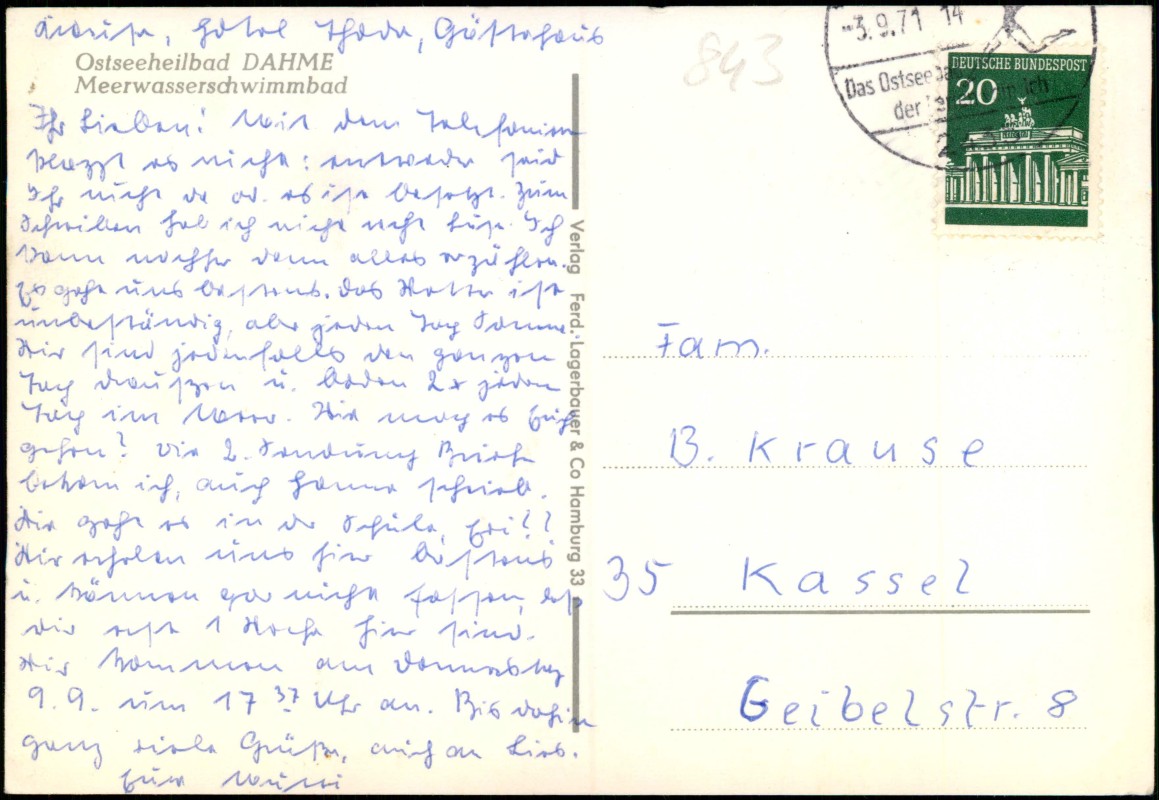 Krause, Hotel Thode, Gästehaus
Ostseeheilbad DAHME
Meerwasserschwimmbad
Ihr Lieben! Mit dem Telefonieren
klappt es nicht: entweder seid
Ihr nicht da od. es ist besetzt. Zum
Schreiben hab ich nicht recht Lust. Ich
kann nachher dann alles erzählen.
Es geht uns bestens. Das Wetter ist
unbeständig, aber jeden Tag Sonne.
Wir sind jedenfalls den ganzen
Tag draußen u. baden 2x jeden
Tag im Meer. Wie mag es Euch
gehen? Die 2. Sendung Briefe
bekam ich, auch Hanne schrieb.
Wie geht es in der Schule,
Wir erholen uns hier bestens
u. können gar nicht fassen, daß
wir erst 1 Woche hier sind.
Wir kommen am Donnerstag
9.9. um 17 37 Uhr an. Bis dahin
ganz viele Grüße, auch an
Eure Mutti
Verlag Ferd. Lagerbauer & Co Hamburg 33
843
-3.9.71 14
Das Ostseebad
der
DEUTSCHE BUNDESPOST
20
Fam.
B. Krause
35 Kassel
Geibelstr. 8